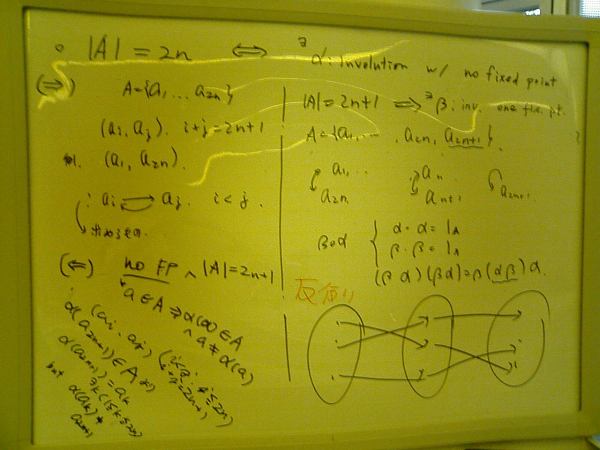 。 |A| = 2n ⇔ ∃α: involution w/ no fixed point
(⇒) A={a₁, ... a₂ₙ}
(aᵢ, aⱼ). i+j=2n+1
(a₁, a₂ₙ).
: aᵢ aⱼ. i<j.
(⇐) no FP ∧ |A|=2n+1
a∈A ⇒ α(a)∈A
∧ a≠α(a)
(aᵢ, aⱼ)
α(a₂ₙ₊₁)∈A
α(a₂ₙ₊₁)=aₖ
but α(aₖ)≠
a₂ₙ₊₁
|A|=2n+1 ⇒ ∃β: inv. one fix. pt.
A={a₁, ... , a₂ₙ, a₂ₙ₊₁}.
a₁, ... aₙ
a₂ₙ aₙ₊₁ a₂ₙ₊₁
β∘α { α·α = 1_A
β·β = 1_A
(βα)(βα)=β(αβ)α.
反例